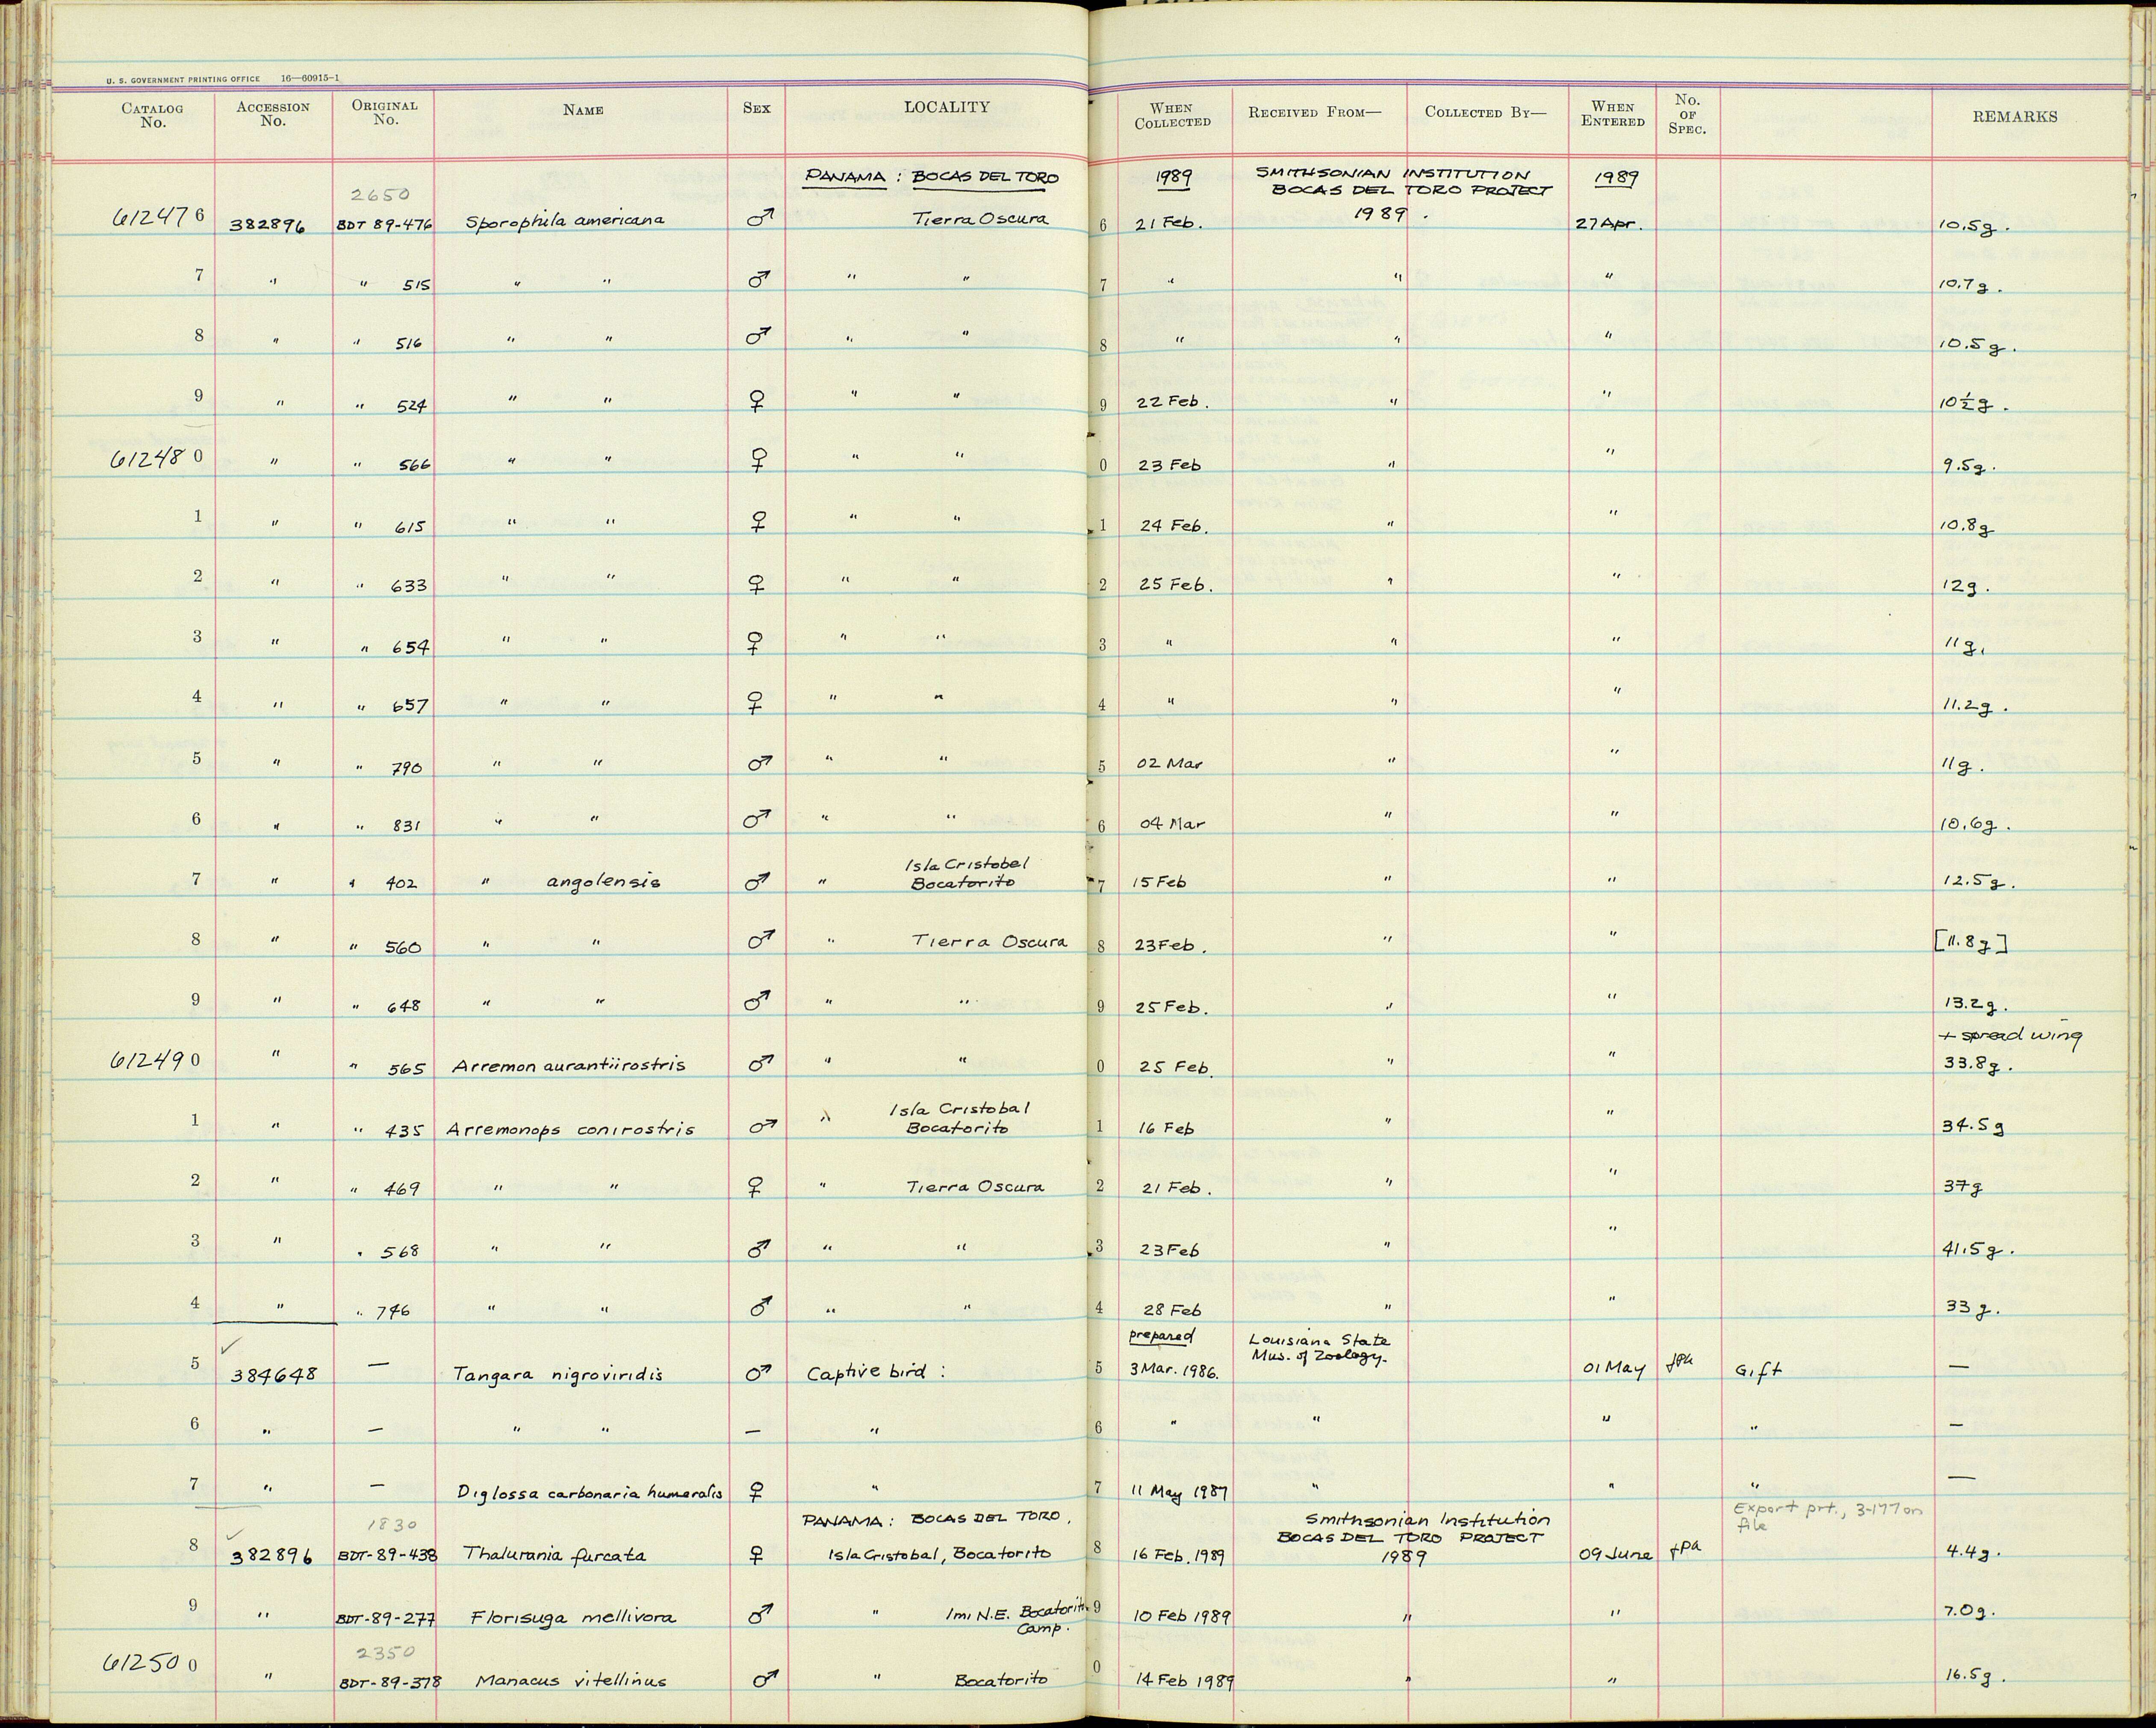 U. S. GOVERNMENT PRINTING OFFICE 16—60915-1
CATALOG No. ACCESSION No. ORIGINAL No. NAME SEX LOCALITY WHEN COLLECTED RECEIVED FROM— COLLECTED BY— WHEN ENTERED No. OF SPEC. REMARKS
PANAMA : BOCAS DEL TORO 1989 SMITHSONIAN INSTITUTION 1989
2650 BOCAS DEL TORO PROJECT
612476 382896 BDT 89-476 Sporophila americana ♂ Tierra Oscura 6 21 Feb. 1989. 27 Apr. 10.5g.
7 " " 515 " " ♂ " " 7 " " " 10.7g.
8 " " 516 " " ♂ " " 8 " " " 10.5g.
9 " " 524 " " ♀ " " 9 22 Feb. " " 10½g.
612480 " " 566 " " ♀ " " 0 23 Feb " " 9.5g.
1 " " 615 " " ♀ " " 1 24 Feb. " " 10.8g
2 " " 633 " " ♀ " " 2 25 Feb. " " 12g.
3 " " 654 " " ♀ " " 3 " " " 11g.
4 " " 657 " " ♀ " " 4 " " " 11.2g.
5 " " 790 " " ♂ " " 5 02 Mar " " 11g.
6 " " 831 " " ♂ " " 6 04 Mar " " 10.6g.
Isla Cristobel
7 " " 402 " angolensis ♂ " Bocatorito 7 15 Feb " " 12.5g.
8 " " 560 " " ♂ " Tierra Oscura 8 23 Feb. " " [11.8g]
9 " " 648 " " ♂ " " 9 25 Feb. " " 13.2g.
+ spread wing
612490 " " 565 Arremon aurantiirostris ♂ " " 0 25 Feb. " " 33.8g.
Isla Cristobal
1 " " 435 Arremonops conirostris ♂ " Bocatorito 1 16 Feb " " 34.5g
2 " " 469 " " ♀ " Tierra Oscura 2 21 Feb. " " 37g
3 " " 568 " " ♂ " " 3 23 Feb " " 41.5g.
4 " " 746 " " ♂ " " 4 28 Feb " " 33g.
prepared Louisiana State
Mus. of Zoology.
5 384648 — Tangara nigroviridis ♂ Captive bird : 5 3 Mar. 1986. 01 May Gift —
6 " — " " — " 6 " " " " —
7 " — Diglossa carbonaria humeralis ♀ " 7 11 May 1987 " " " —
PANAMA : BOCAS DEL TORO, Smithsonian Institution Export prt., 3-177 on
1830 BOCAS DEL TORO PROJECT file
8 382896 BDT-89-438 Thalurania furcata ♀ Isla Cristobal, Bocatorito 8 16 Feb. 1989 1989 09 June 4.4g.
9 " BDT-89-277 Florisuga mellivora ♂ " 1mi N.E. Bocatorito 9 10 Feb 1989 " " 7.0g.
Camp.
2350
612500 " BDT-89-378 Manacus vitellinus ♂ " Bocatorito 0 14 Feb 1989 " " 16.5g.